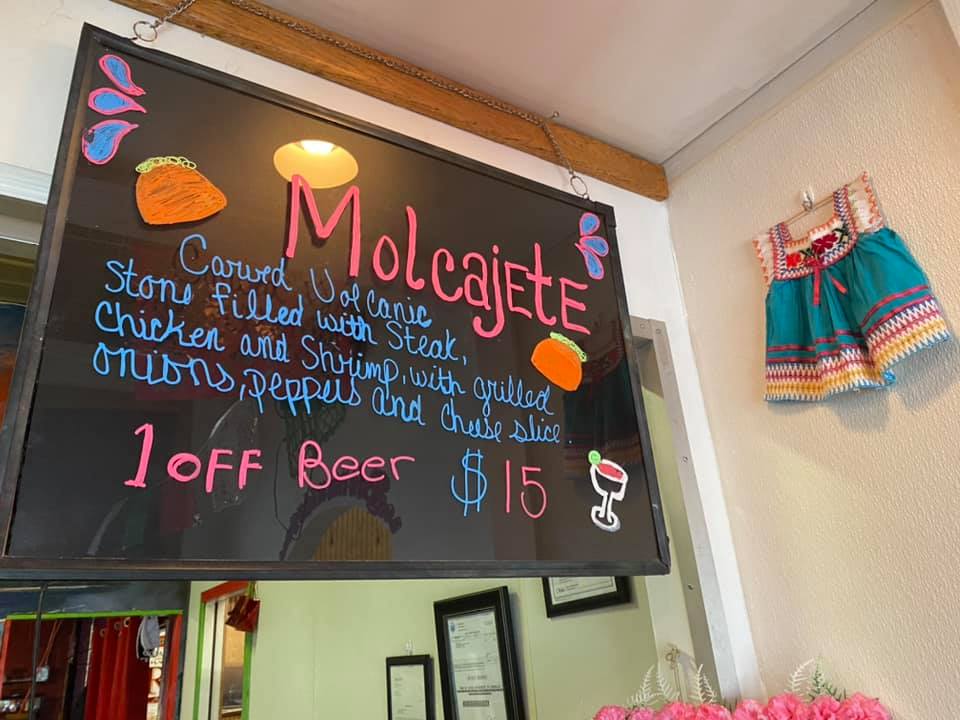 Molcajete
Carved Volcanic
Stone filled with Steak,
Chicken and Shrimp, with grilled
onions, peppers and cheese slice.
1 OFF Beer $15